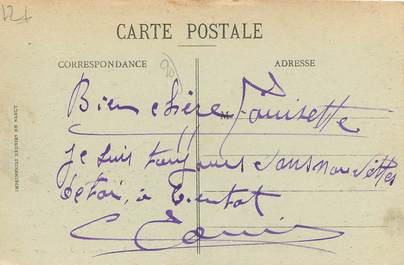 CARTE POSTALE
CORRESPONDANCE
ADRESSE
Bien chère Louisette
M
je suis toujours sans nouvelles
de toi, à bientot
IMPRIMERIES RÉUNIES DE NANCY